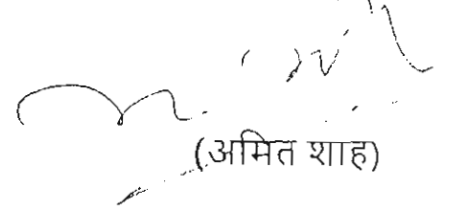 (अमित शाह)